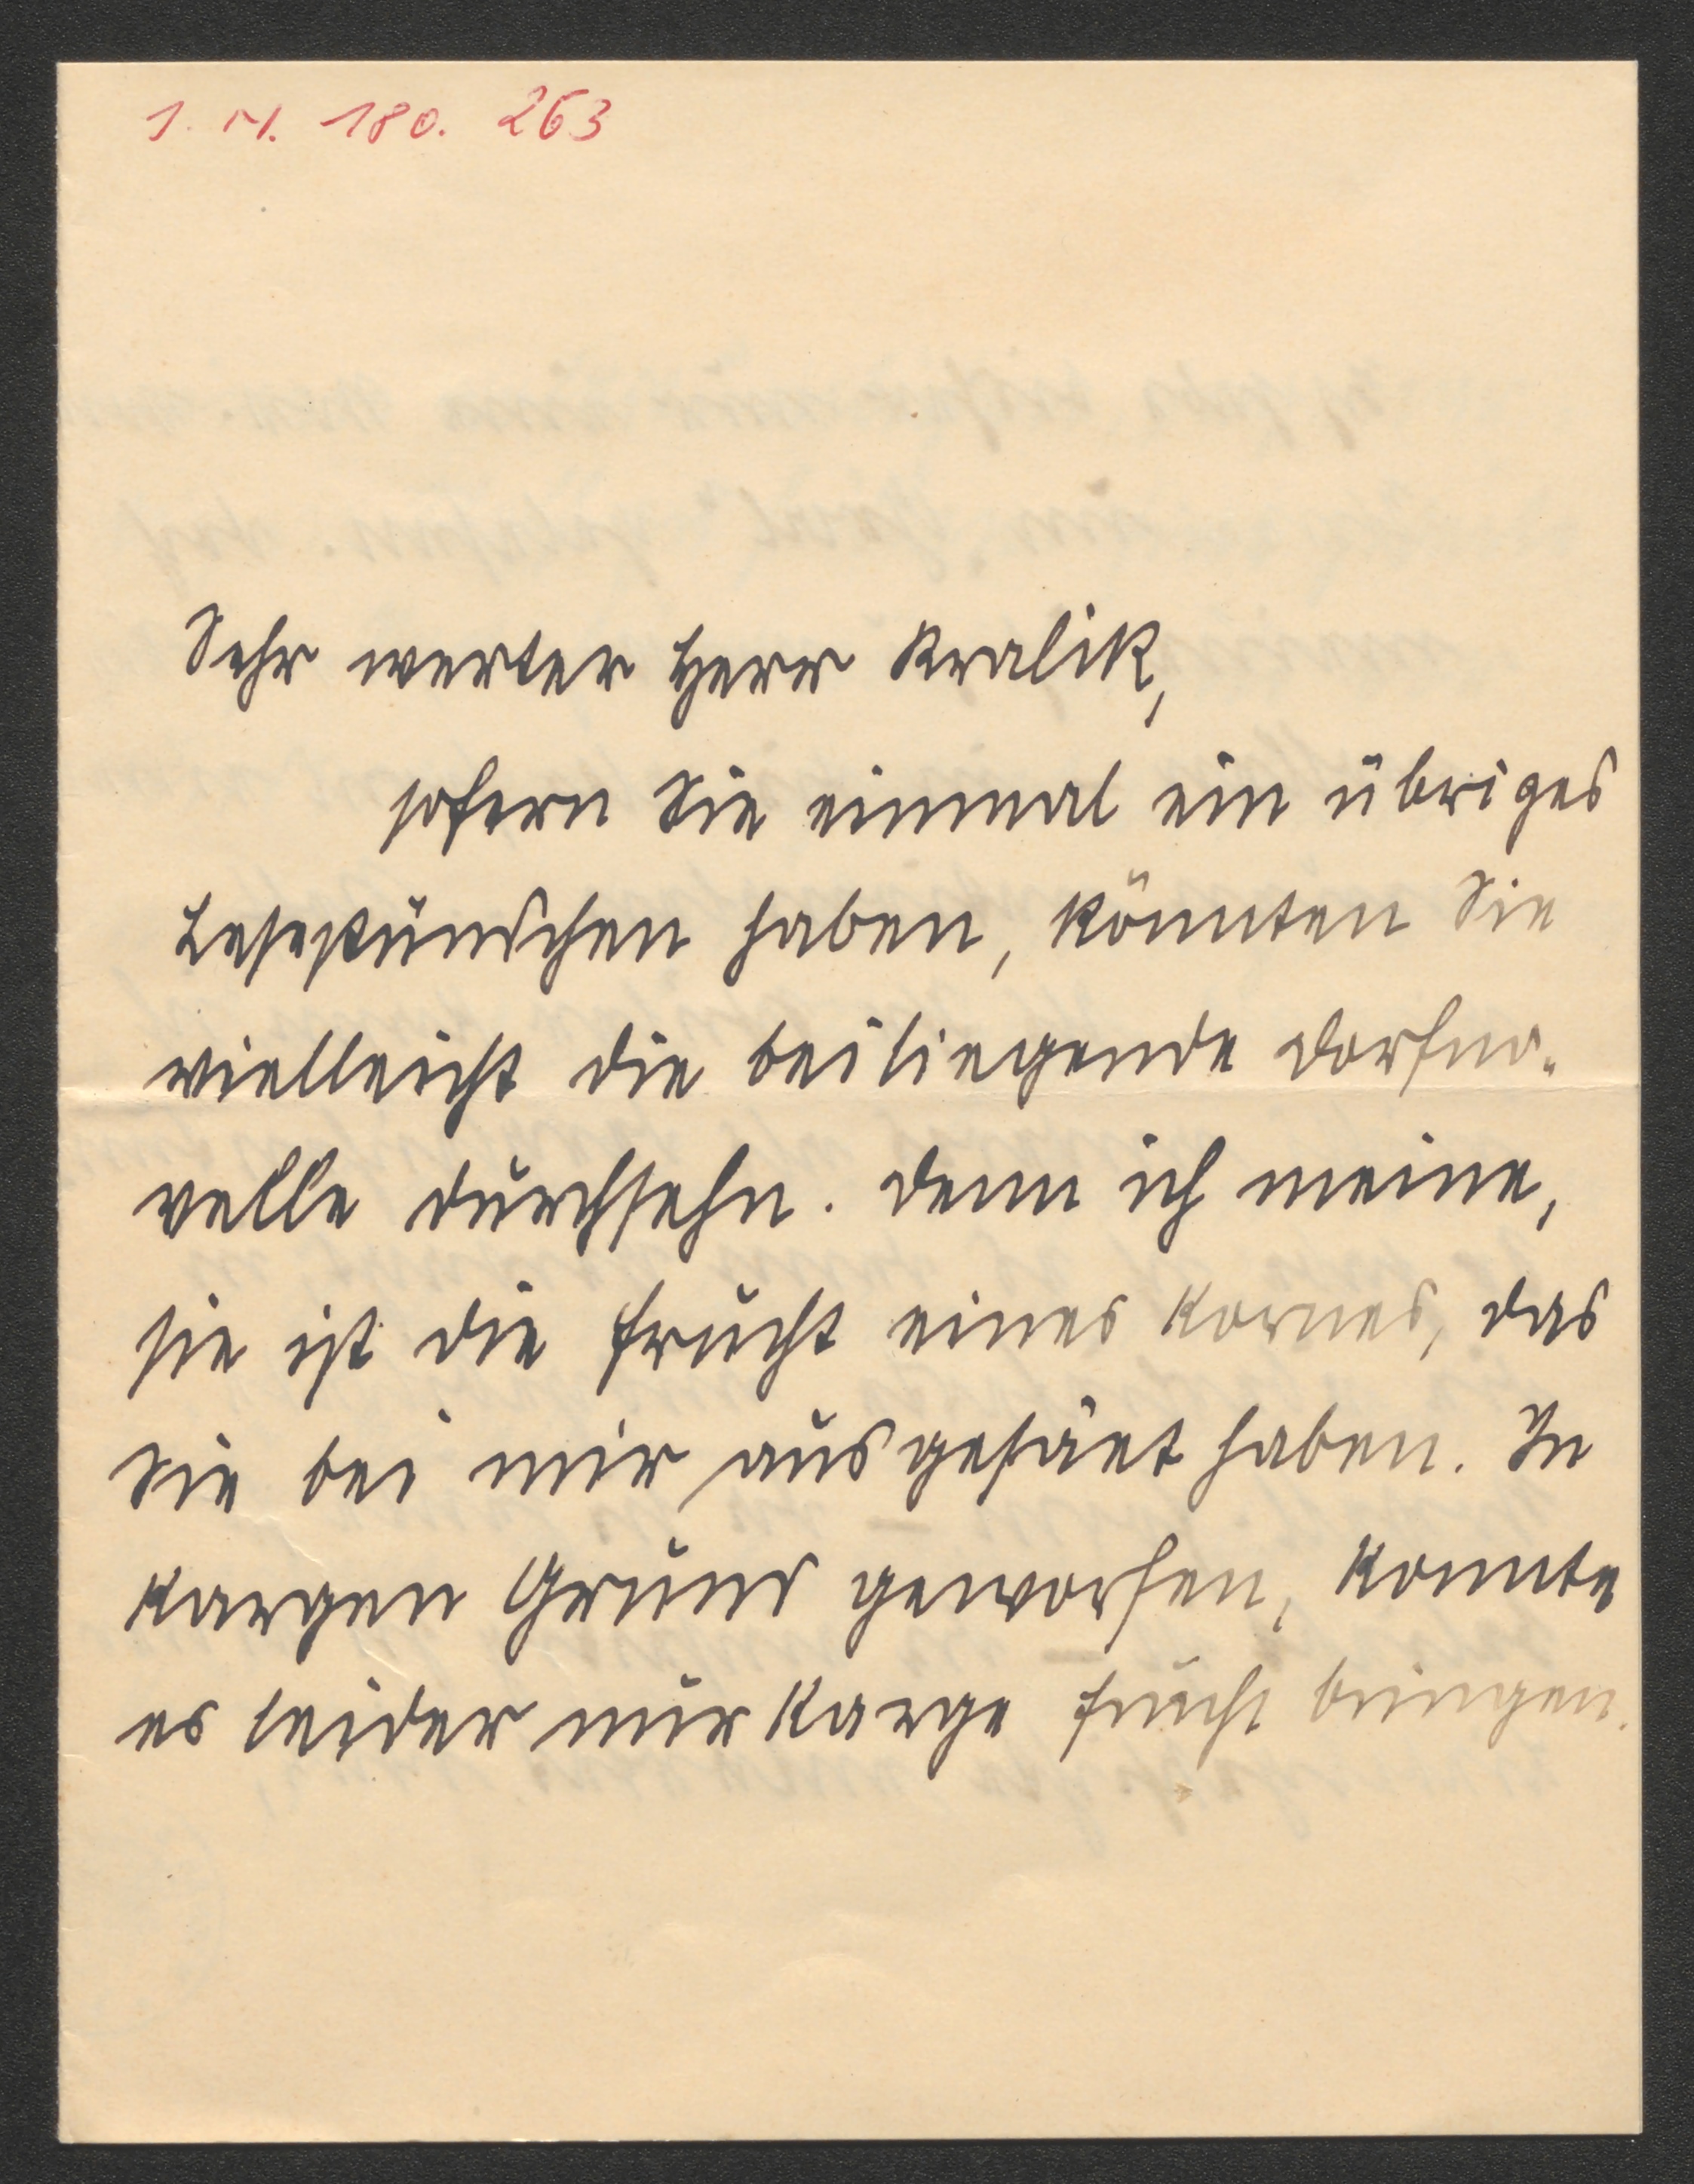 I. N. 180. 263
Sehr werter Herr Kralik,
sofern Sie einmal ein übriges
Lesestündchen haben, könnten Sie
vielleicht die beiliegende Dorfno-
velle durchsehn. Denn ich meine,
sie ist die Frucht eines Kornes, das
Sie bei mir ausgesäet haben. In
kargen Grund geworfen, konnte
es leider nur karge Frucht bringen.